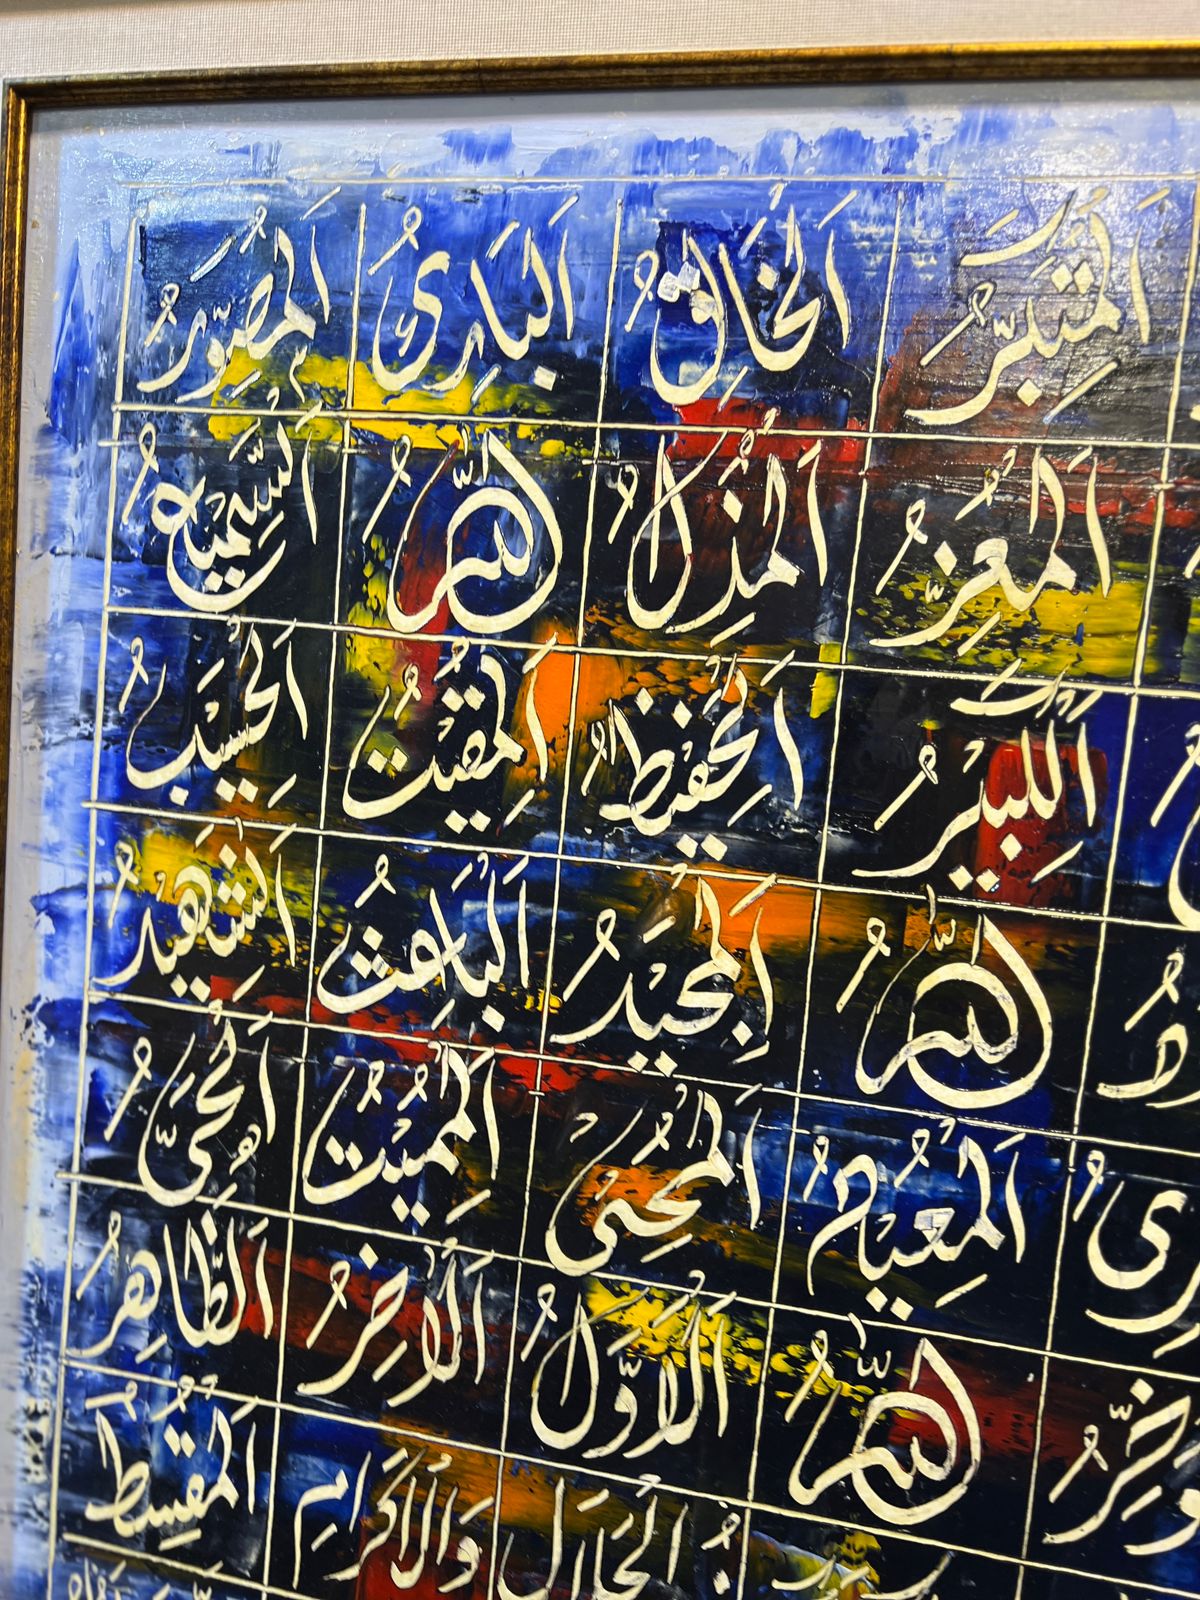 المُتَكَبِّرُ الخَالِقُ البَارِئُ المُصَوِّرُ
المُعِزُّ المُذِلُّ اللهُ السَّمِيعُ
الكَبِيرُ الحَفِيظُ المُقِيتُ الحَسِيبُ
اللهُ المَجِيدُ البَاعِثُ الشَّهِيدُ
المُعِيدُ المُحْيِي المُمِيتُ الحَيُّ
اللهُ الأَوَّلُ الآخِرُ الظَّاهِرُ
الجَلَالِ وَالإِكْرَامِ المُقْسِطُ